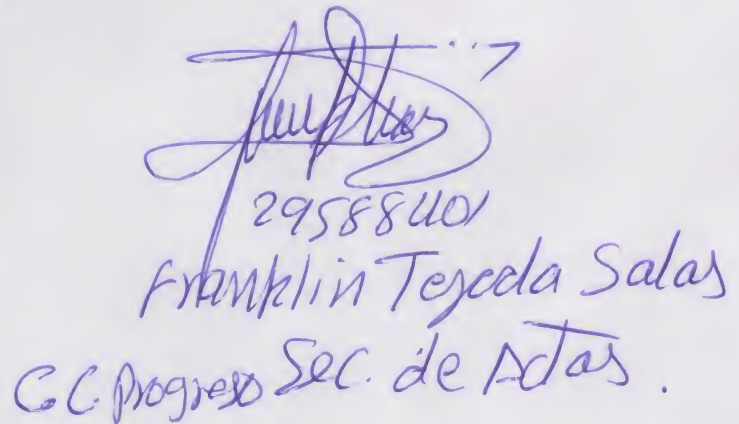 29588401
Franklin Tejeda Salas
C.C. Progreso Sec. de Actas.